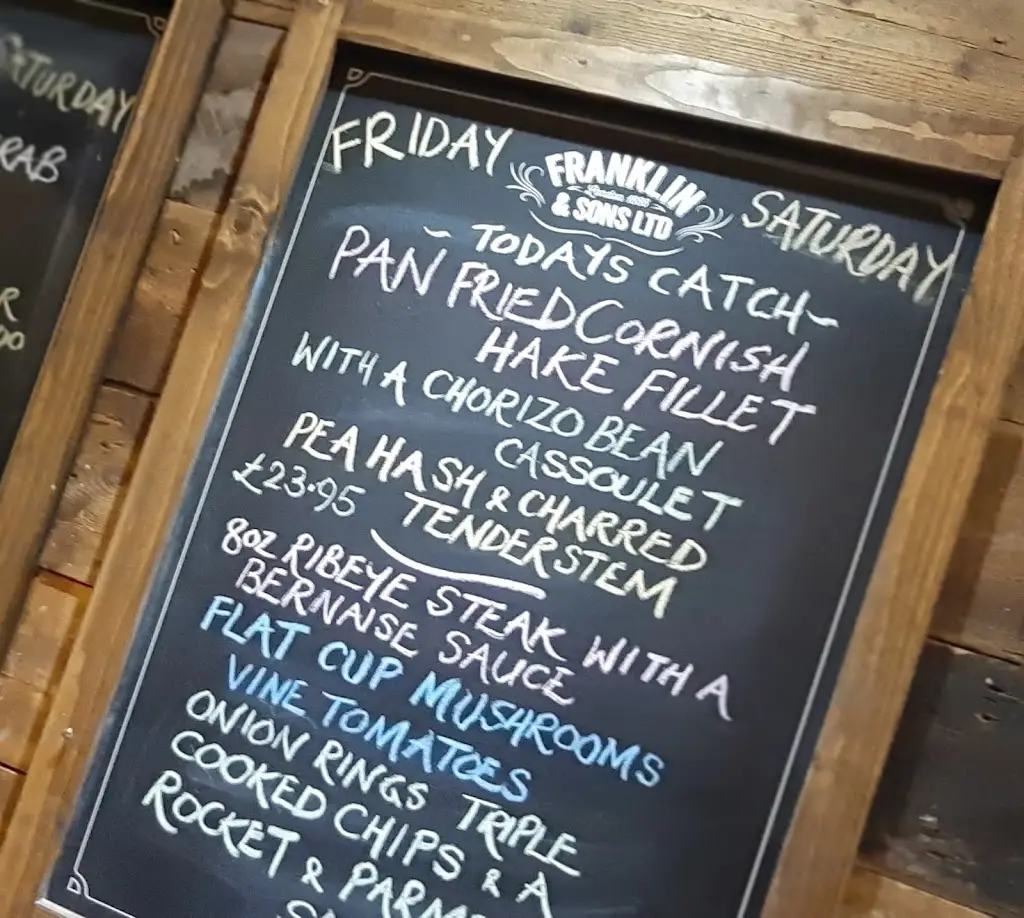 SATURDAY
FRIDAY
FRANKLIN
London 1886
& SONS LTD
SATURDAY
~ TODAYS CATCH~
PAN FRIED CORNISH
HAKE FILLET
WITH A CHORIZO BEAN
CASSOULET
PEA HASH & CHARRED
£23.95 TENDERSTEM
8oz RIBEYE STEAK WITH A
BERNAISE SAUCE
FLAT CUP MUSHROOMS
VINE TOMATOES
ONION RINGS TRIPLE
COOKED CHIPS & A
ROCKET &